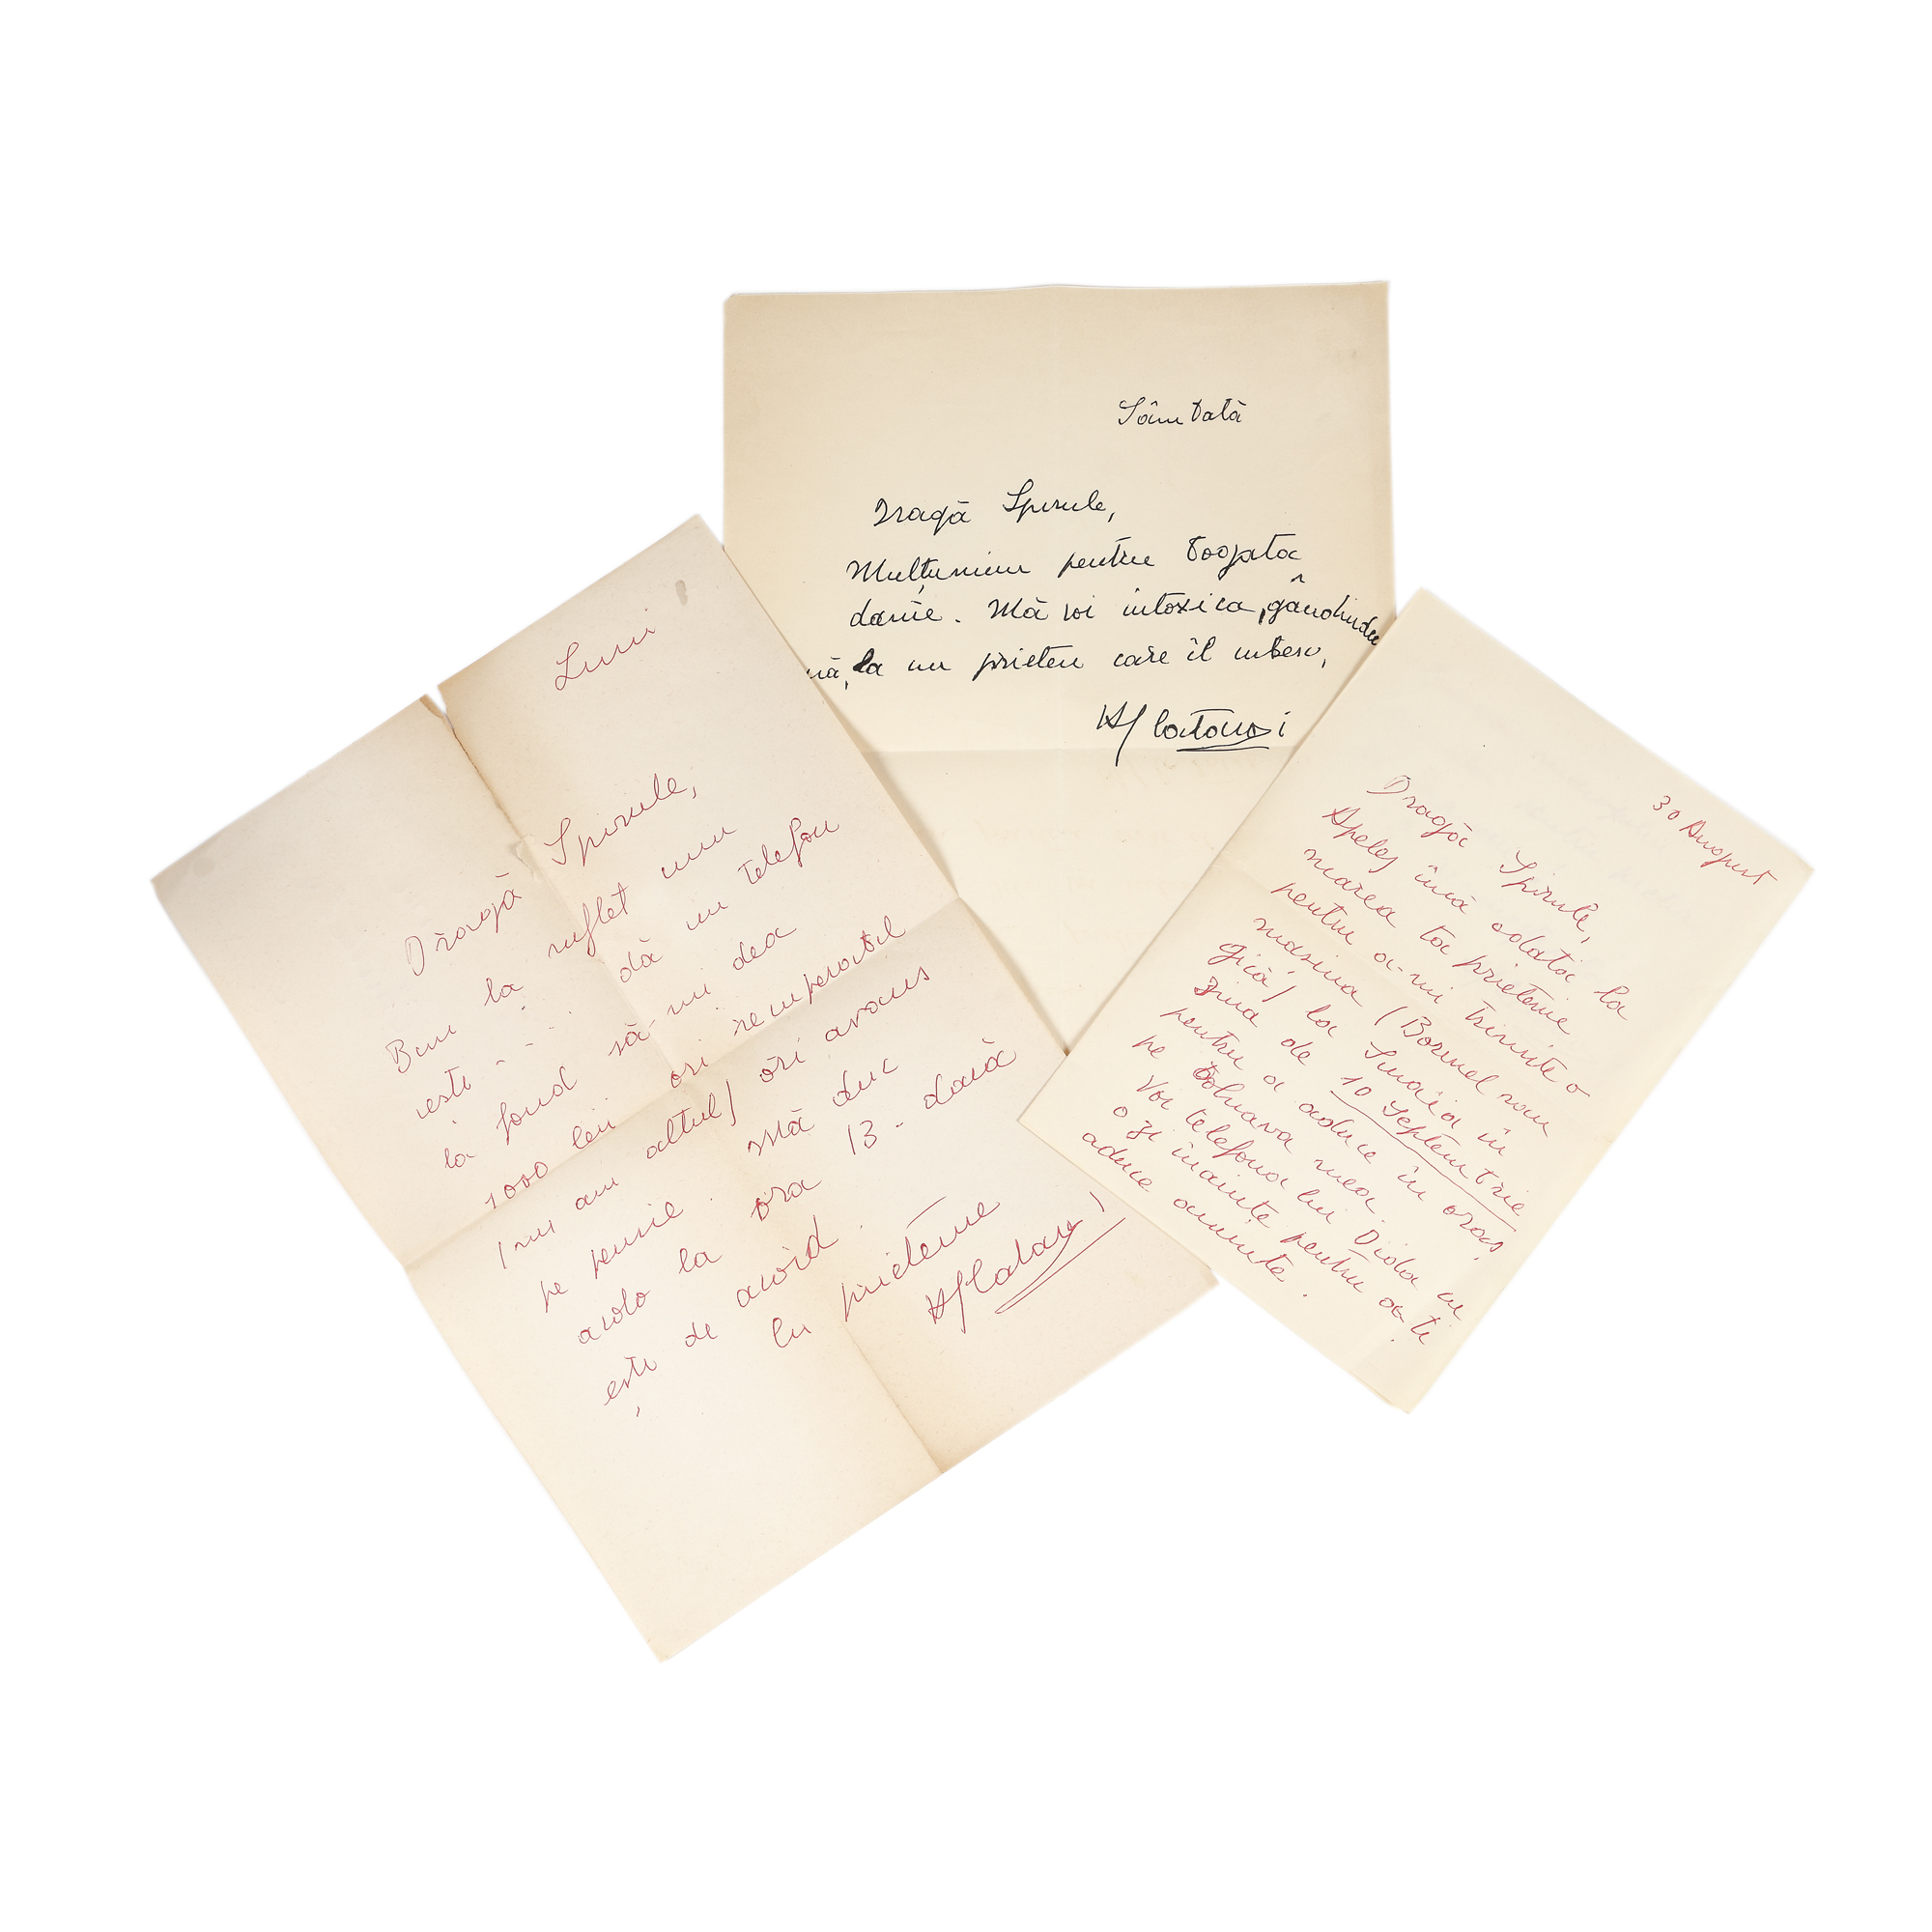 Luni
Dragă Spirule,
Bun la suflet cum
ești . . . dă un telefon
la fond să-mi dea
1000 lei ori recuperabil
(nu am altul) ori avans
pe pensie. Mă duc
acolo la ora 13 - dacă
ești de acord.
Cu prietenie
Sâmbătă
Dragă Spirule,
Mulțumim pentru bogata
danie. Mă voi intoxica, gândindu
mă, la un prieten care îl iubesc,
30 August
Dragă Spirule,
Apelez încă odată la
marea ta prietenie
pentru a-mi trimite o
mașina (Bornel sau
Gică) la Sinaia în
ziua de 10 Septembrie
pentru a aduce în oraș
pe bolnava mea.
Voi telefona lui Dida cu
o zi înainte pentru a-ți
aduce aminte.